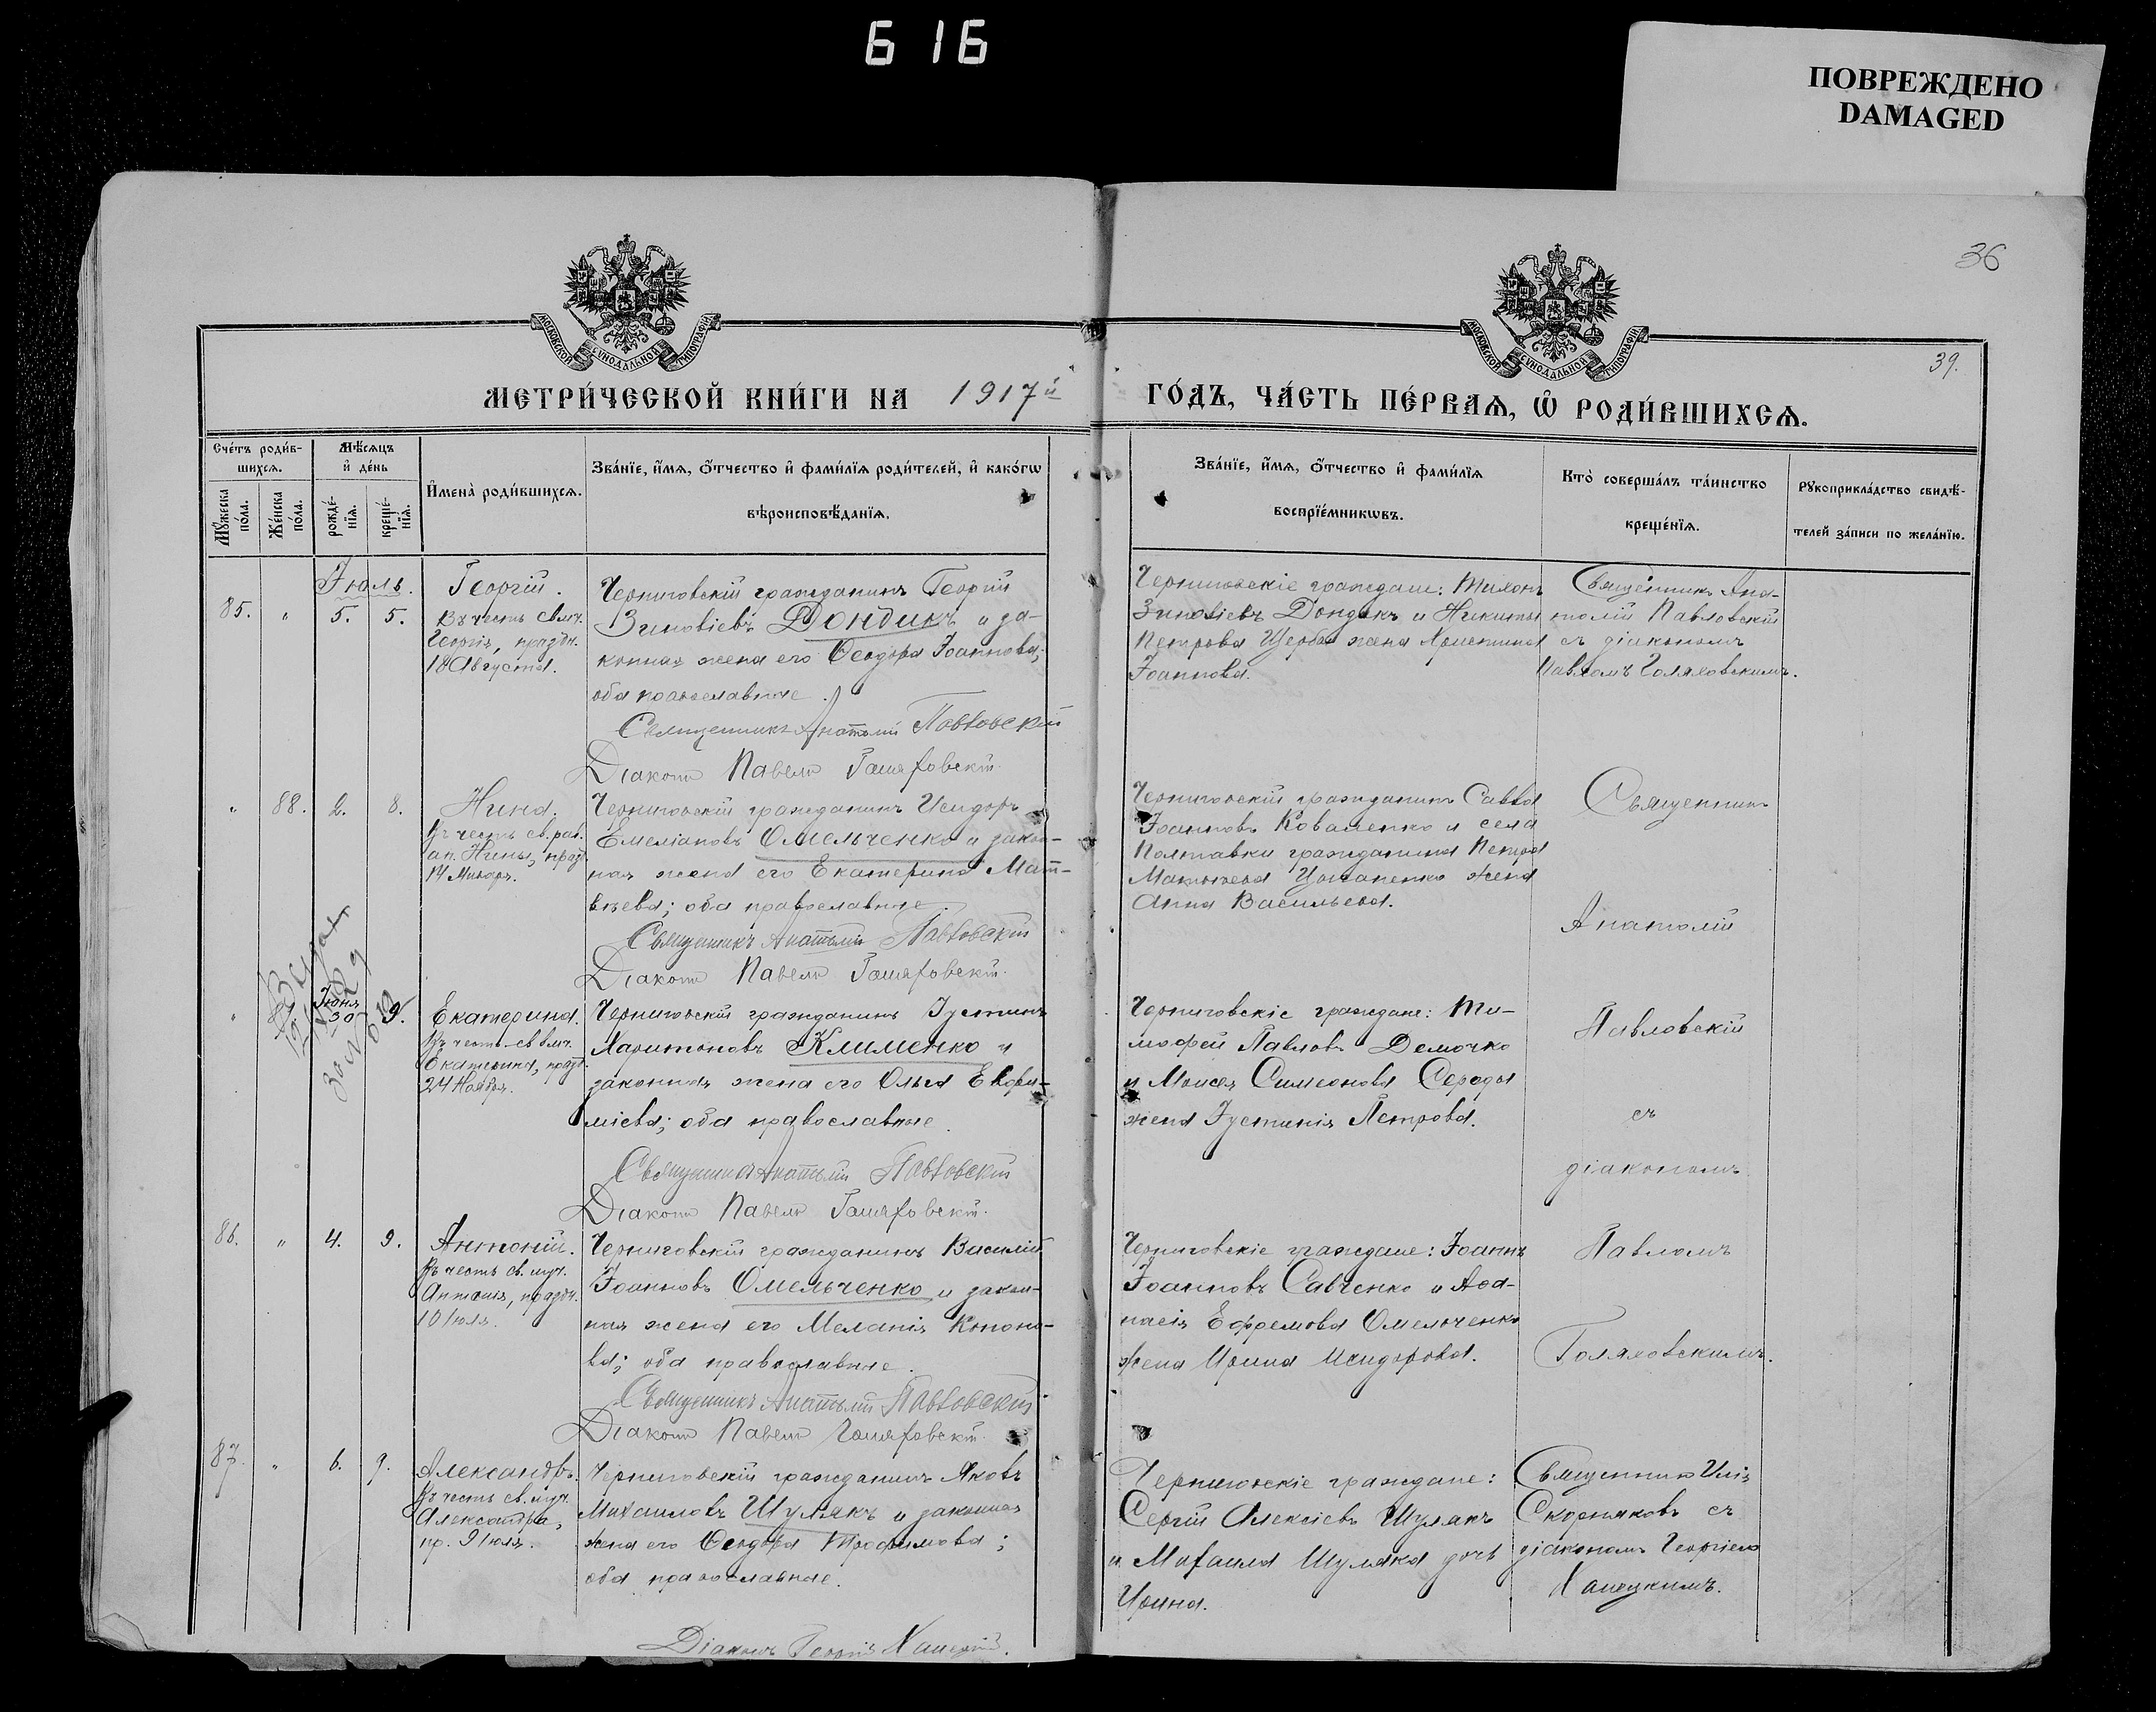 616
ПОВРЕЖДЕНО
DAMAGED
36
39.
МОСКОВСКОЙ СѴНОДАЛЬНОЙ ТИПОГРАФІИ
МОСКОВСКОЙ СѴНОДАЛЬНОЙ ТИПОГРАФІИ
МЕТРИ́ЧЕСКОЙ КНИ́ГИ НА 1917й ГО́ДЪ, ЧА́СТЬ ПЕ́РВАѦ, Ѽ РОДИ́ВШИХСѦ.
Сче́тъ роди́в-
шихсѧ.
Мꙋжеска по́ла.
Же́нска по́ла.
Мѣ́сѧцъ
и҆ де́нь
рожде́-
нїѧ.
креще́-
нїѧ.
И҆мена̀ роди́вшихсѧ.
Зва́нїе, и҆́мѧ, ѻ҆́тчество и҆ фами́лїѧ роди́телей, и҆ како́гѡ
вѣроисповѣ́данїѧ.
Зва́нїе, и҆́мѧ, ѻ҆́тчество и҆ фами́лїѧ
воспрїе́мникѡвъ.
Кто̀ соверша́лъ та́инство
креще́нїѧ.
Рꙋкоприкла́дство свидѣ́-
телей за́писи по жела́нїю.
Іюль.
85. " 5. 5.
Георгій.
Въ честь св. мч.
Георгія, праздн.
18 Августа.
Черниговскій гражданинъ Георгій
Зиновіевъ Дондикъ и за-
конная жена его Ѳеодора Іоаннова;
оба православные.
Священникъ Анатолій Павловскій
Діаконъ Павелъ Голяховскій.
Черниговскіе граждане: Тихонъ
Зиновіевъ Дондикъ и Никиты
Петрова Щерба жена Христина
Іоаннова.
Священникъ Ана-
толій Павловскій
съ діакономъ
Павломъ Голяховскимъ.
" 88. 2. 8.
Нина.
Въ честь св. рав.
ап. Нины, празд.
14 Января.
Черниговскій гражданинъ Исидоръ
Емеліановъ Омельченко и закон-
ная жена его Екатерина Мат-
вѣева; оба православные.
Священникъ Анатолій Павловскій
Діаконъ Павелъ Голяховскій.
Черниговскій гражданинъ Савва
Іоанновъ Коваленко и села
Полтавки гражданина Петра
Матвѣева жена
Анна Васильева.
Священникъ
Анатолій
Павловскій
съ
діакономъ
Павломъ
Голяховскимъ.
" Іюня 30 9.
Екатерина.
Въ честь св. вмч.
Екатерины, празд.
24 Ноября.
Черниговскій гражданинъ Іустинъ
Харитоновъ Клименко и
законная жена его Ольга Евфи-
міева; оба православные.
Священникъ Анатолій Павловскій
Діаконъ Павелъ Голяховскій.
Черниговскіе граждане: Ти-
мофей Павловъ Демочко
и Моисея Симеонова Середы
жена Іустинія Петрова.
86. " 4. 9.
Антоній.
Въ честь св. муч.
Антонія, праздн.
10 Іюля.
Черниговскій гражданинъ Василій
Іоанновъ Омельченко и закон-
ная жена его Меланія Конон-
ва; оба православные.
Священникъ Анатолій Павловскій
Діаконъ Павелъ Голяховскій.
Черниговскіе граждане: Іоаннъ
Іоанновъ Савченко и Аѳа-
насія Ефремова Омельченко
жена Ирина Исидорова.
87. " 6. 9.
Александръ.
Въ честь св. муч.
Александра,
пр. 9 Іюля.
Черниговскій гражданинъ Яковъ
Михаиловъ Шулякъ и законная
жена его Ѳеодора Трофимова;
оба православные.
Діаконъ Георгій
Черниговскіе граждане:
Сергій Алексіевъ Шулякъ
и Михаила Шуляка дочь
Ирина.
Священникъ Илія
Скорняковъ съ
діакономъ Георгіемъ